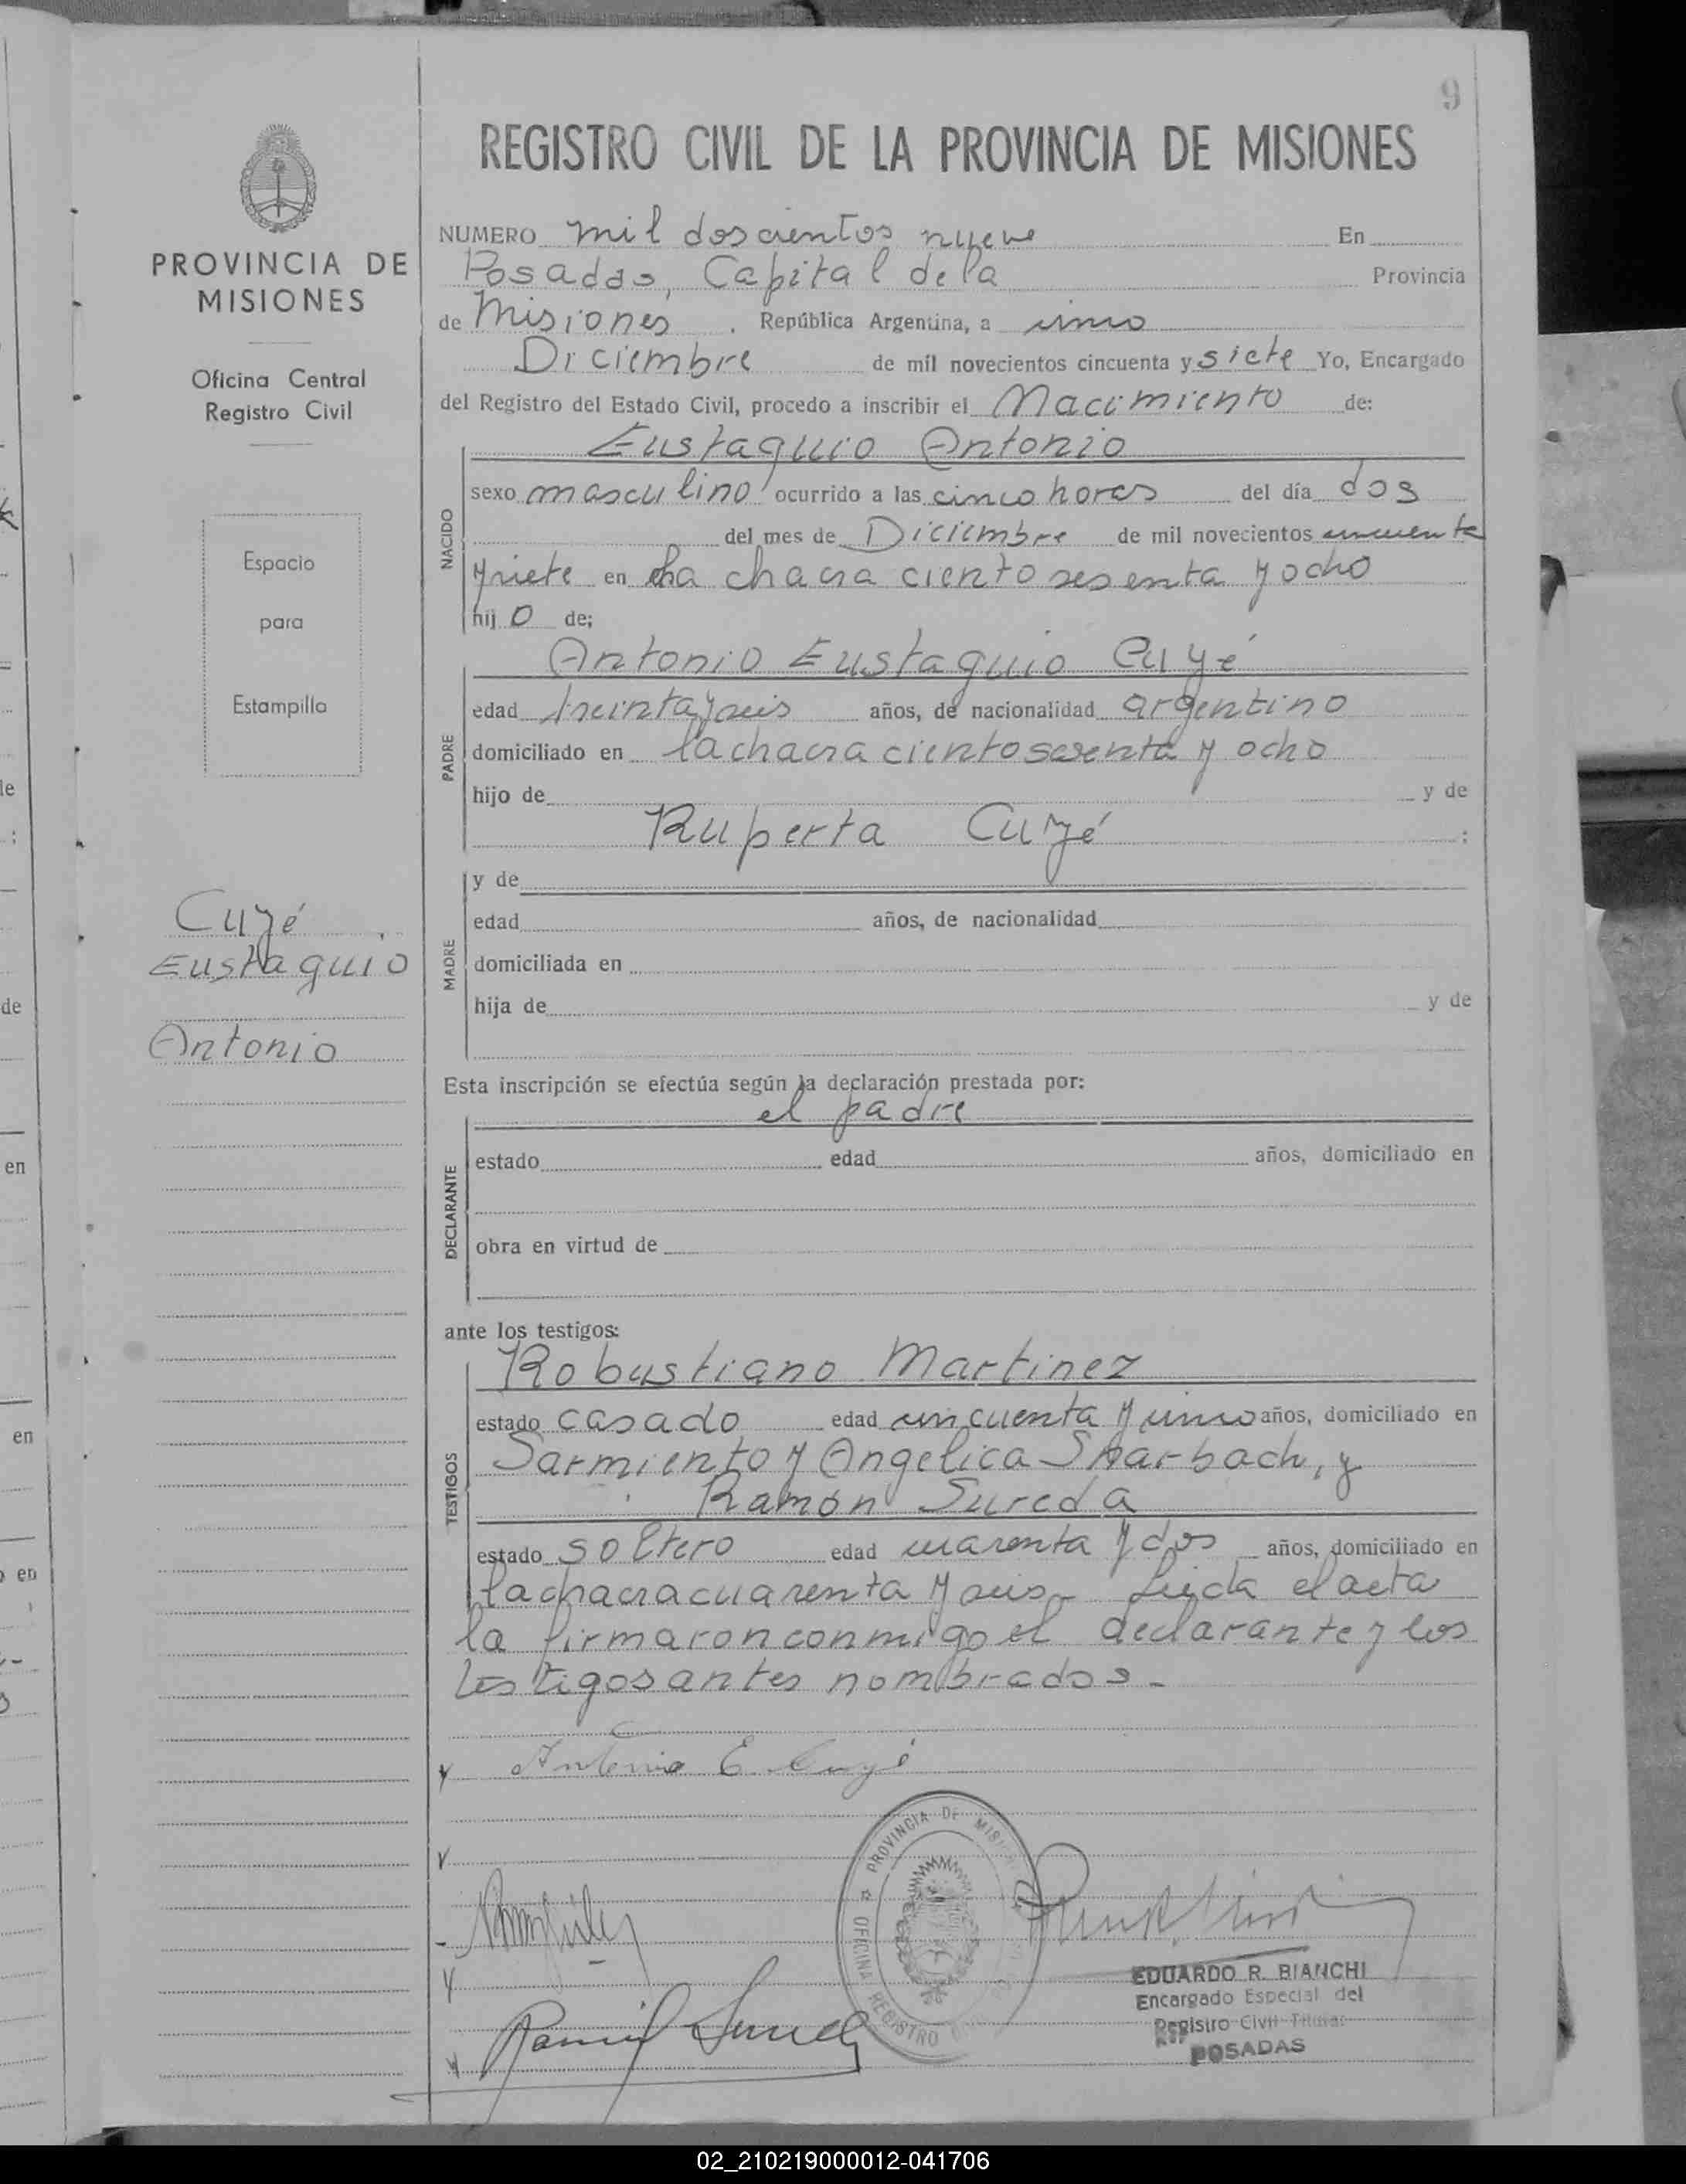 9
REGISTRO CIVIL DE LA PROVINCIA DE MISIONES
PROVINCIA DE
MISIONES
Oficina Central
Registro Civil
Espacio
para
Estampilla
Cuyé
Eustaquio
Antonio
NUMERO mil doscientos nueve En
Posadas, Capital de la Provincia
de Misiones . República Argentina, a cinco
Diciembre de mil novecientos cincuenta y siete Yo, Encargado
del Registro del Estado Civil, procedo a inscribir el Nacimiento de:
NACIDO
Eustaquio Antonio
sexo masculino ocurrido a las cinco horas del día dos
del mes de Diciembre de mil novecientos cincuenta
y siete en la chacra ciento sesenta y ocho
hijo de;
PADRE
Antonio Eustaquio Cuyé
edad treinta y seis años, de nacionalidad argentino
domiciliado en la chacra ciento sesenta y ocho
hijo de y de
Ruperta Cuyé ;
MADRE
y de
edad años, de nacionalidad
domiciliada en
hija de y de
Esta inscripción se efectúa según la declaración prestada por:
el padre
DECLARANTE
estado edad años, domiciliado en
obra en virtud de
ante los testigos:
TESTIGOS
Robustiano Martinez
estado casado edad cincuenta y cinco años, domiciliado en
Sarmiento y Angelica, y
Ramón Sureda
estado soltero edad cuarenta y dos años, domiciliado en
la chacra cuarenta y seis - Leida el acta
la firmaron conmigo el declarante y los
testigos antes nombrados. -
Antonio E. Cuyé
PROVINCIA DE MISIONES
OFICINA REGISTRO
EDUARDO R. BIANCHI
Encargado Especial del
Registro Civil Titular
POSADAS
02_210219000012-041706